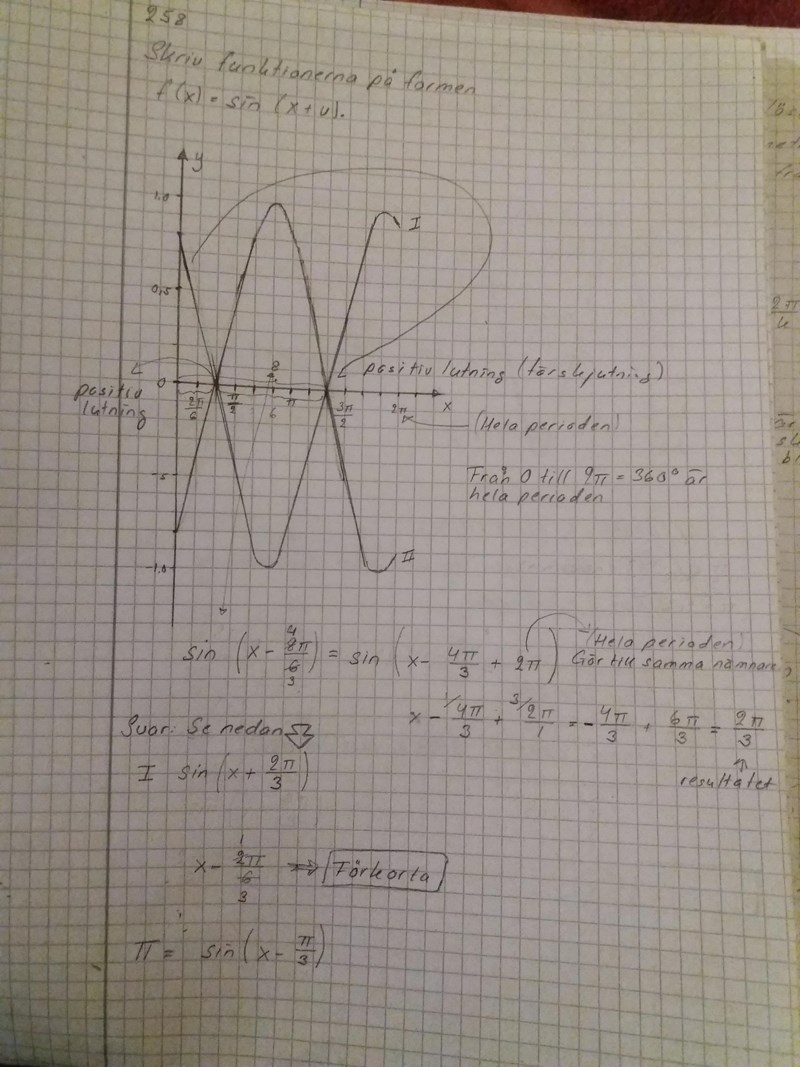 258
Skriv funktionerna på formen
f(x) = sin (x+v).
y
1,0
I
0,5
positiv lutning (förskjutning)
positiv
lutning
0
8
2π/6
π/2
6
π
3π/2
2π
x
(Hela perioden)
Från 0 till 2π = 360° är
hela perioden
-5
-1,0
II
sin (x - 8π/6) = sin (x - 4π/3 + 2π)
4
3
(Hela perioden)
Gör till samma nämnare
x - 1/4π/3 + 3/2π/1 = - 4π/3 + 6π/3 = 2π/3
resultatet
Svar: Se nedan
I sin (x + 2π/3)
x - 2π/6 ⇒ Förkorta
1
3
II = sin (x - π/3)